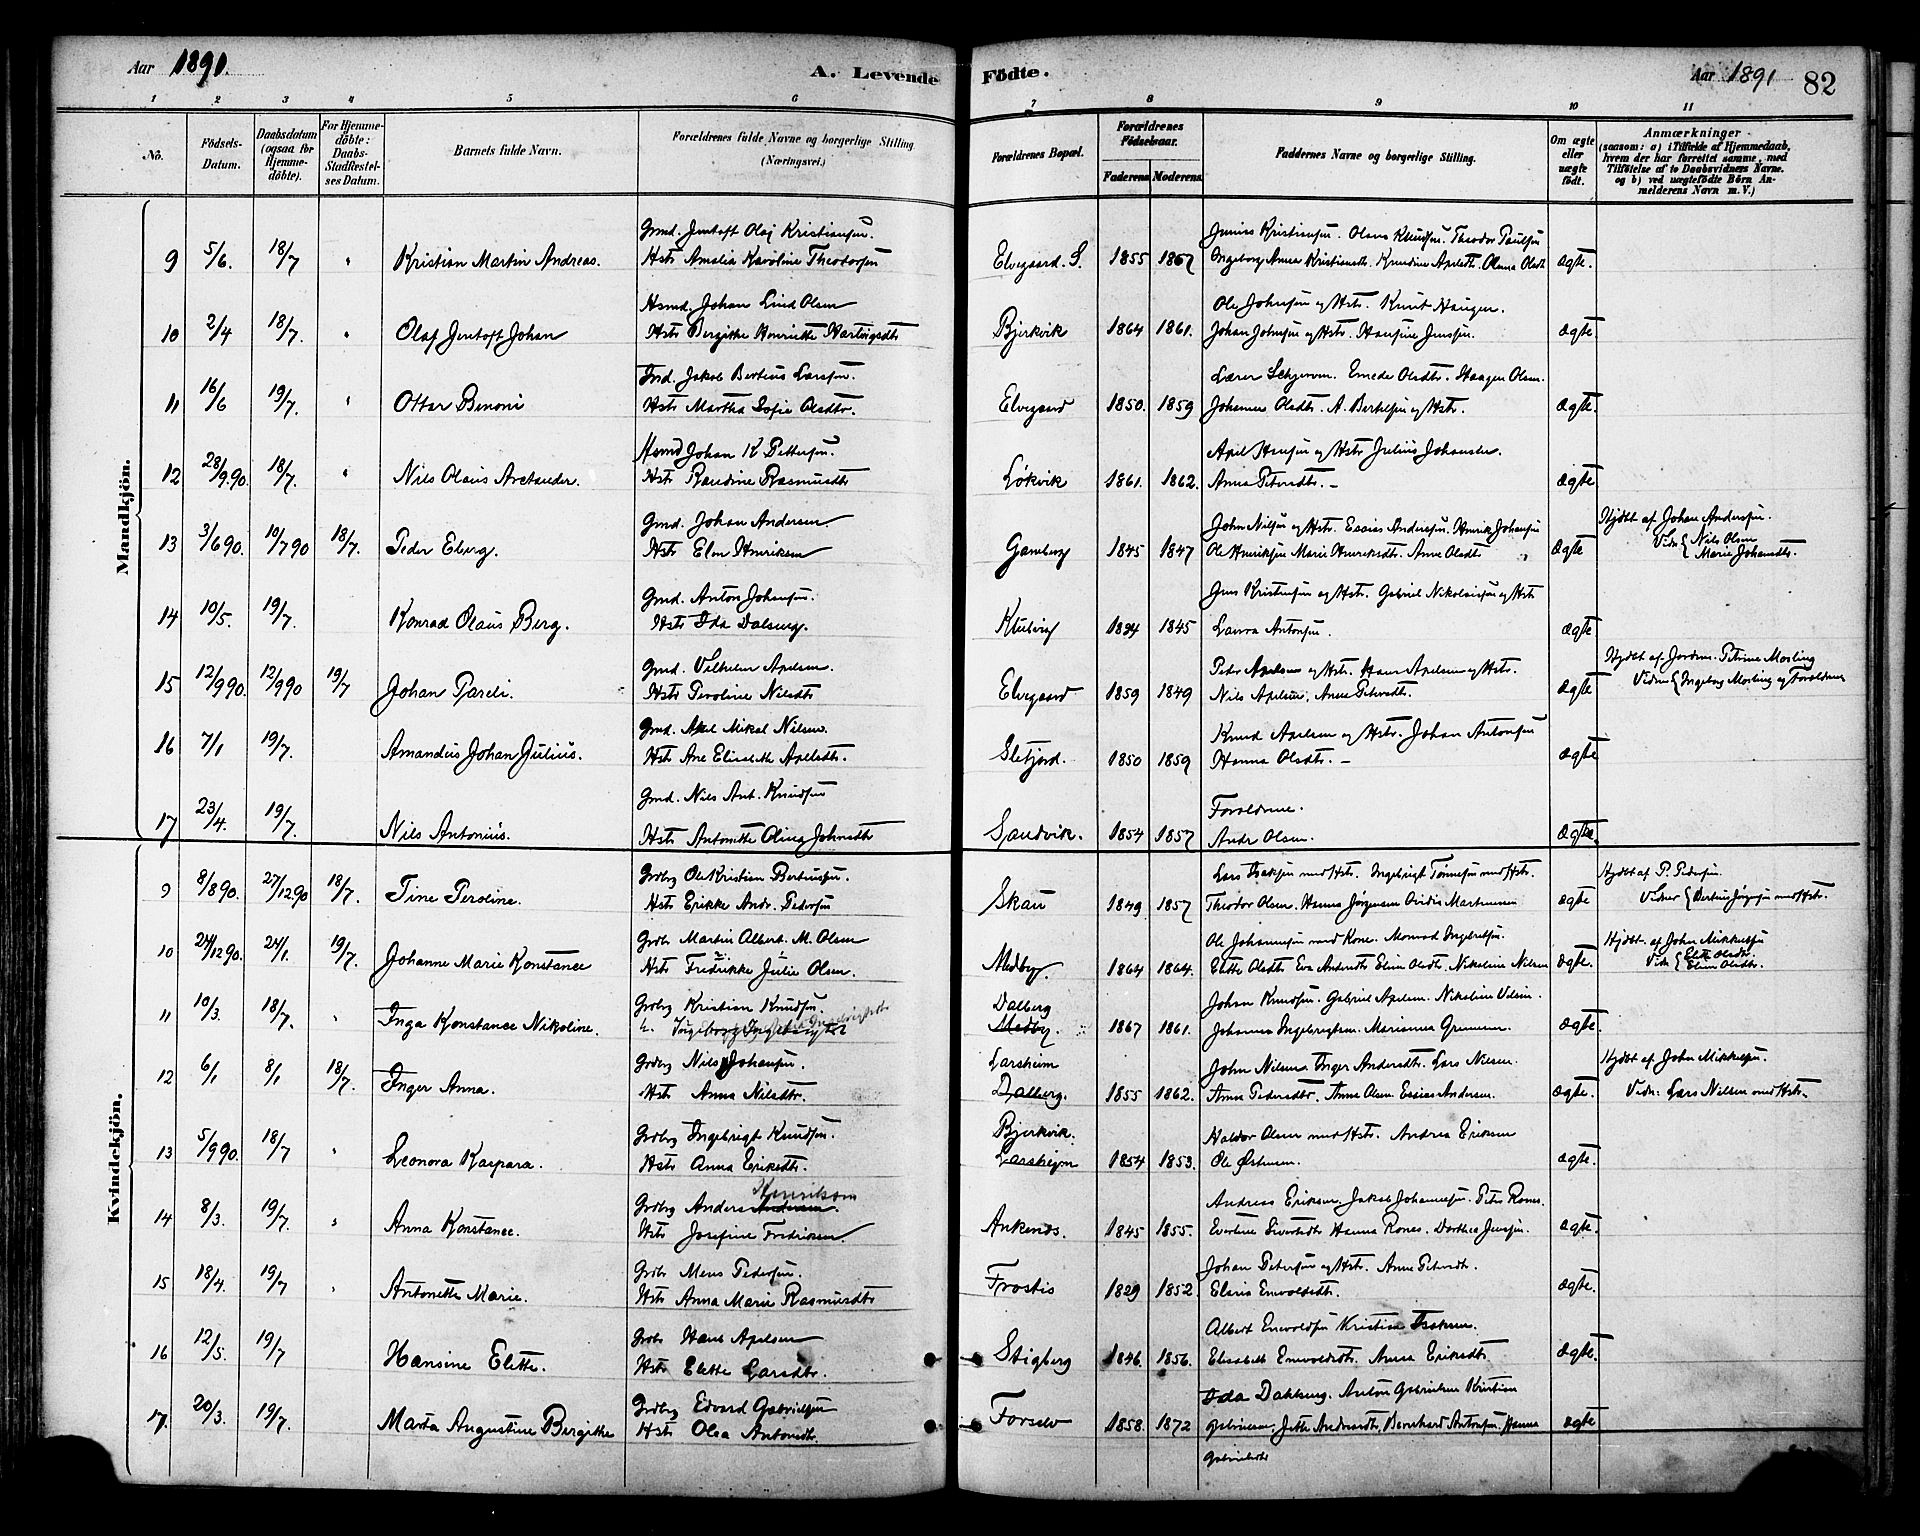 Aar 1891. A. Levende Fødte. Aar 1891 82
1 2 3 4 5 6 7 8 9 10 11
No. Fødsels-Datum. Daabsdatum (ogsaa for Hjemme-døbte). For Hjemme-døbte: Daabs-Stadfæstel-ses Datum. Barnets fulde Navn. Forældrenes fulde Navne og borgerlige Stilling. (Næringsvei.) Forældrenes Bopæl. Forældrenes Fødselsaar. Faderens Moderens Faddernes Navne og borgerlige Stilling. Om ægte eller uægte født. Anmærkninger (saasom: a) i Tilfælde af Hjemmedaab, hvem der har forrettet samme, med Tilføielse af to Daabsvidners Navne. og b) ved uægtefødte Børn An-melderens Navn m. V.)
Mandkjön.
Gmd. Jentoft Olaj Kristiansen. Junius Kristiansen. Olaus Knudsen. Theodor Paulsen
9 5/6. 18/7 " Kristian Martin Andreas. Hstr Amalia Karoline Theodorsen Elvegaard. S. 1855 1867 Ingeborg Anna Kristiansdt. Knudine Axelsdt. Olena Olsdt ægte.
Hsmd. Johan Lind Olsen Ole Johnsen og Hstr. Knut Haugen.
10 2/4 18/7. " Olaf Jentoft Johan Hstr Bergitte Henriette Hartvigsdtr Bjerkvik 1864 1861. Johan Johnsen og Hstr. Hansine Jensen. ægte.
Ind. Jakob Berteus Larssen. Lærer Schjerven. Emede Olsdtr. Haagen Olsen.
11 16/6 19/7. " Ottar Benoni Hstr Martha Sofie Olsdtr. Elvegaard 1850. 1859 Johanna Olsdtr. A. Bertelsen og Hstr. ægte.
Hsmd Johan K Pettersen. Axel Hansen og Hstr Julius Johansen.
12 28/9.90. 18/7. " Nils Olaus Arctander. Hstr Randine Rasmusdtr Løkvik 1861. 1862. Anna Petersdtr. – ægte
Gmd. Johan Andersen. John Nilsen og Hstr. Essias Andersen. Henrik Johansen Hjdbt af Johan Andersen.
13 3/6 90. 10/7 90 18/7. Peder Eberg. Hstr Elen Henriksen Gamberg 1845 1847 Ole Henriksen Marie Henriksdtr. Anne Olsdtr ægte Vidn { Nils Olsen Marie Johansdtr.
Gmd. Anton Johansen. Jens Kristensen og Hstr. Gabriel Nikolaisen og Hstr
14 10/5. 19/7. Konrad Olaus Berg. Hstr Ida Dalberg. 1845 Laura Antonsen. ægte
Gmd. Vilhelm Axelsen. Peder Axelsen og Hstr. Hans Axelsen og Hstr. Hjdbt af Jordm. Petrine Mosling
15 12/9 90. 12/9 90 19/7 Johan Pareli. Hstr Peroline Nilsdtr Elvegaard 1859 1849 Nils Axelsen, Anne Petersdtr. ægte Vidner { Ingeborg Mosling og Foræeldrene
Gmd. Axel Mikal Nilsen. Knud Axelsen og Hstr. Johan Antonsen
16 7/1 19/7. Amandus Johan Julius. Hstr Ane Elisabeth Axelsdtr. Sletjord. 1850 1859 Hanna Olsdtr. – ægte
Gmd. Nils Ant. Knudsen Forældrene.
17 23/4. 19/7. Nils Antonius. Hstr Antonette Olina Johnsdtr Sandvik. 1854 1857 Andr Olsen. ægte.
Kvindekjön.
Grdbrg Ole Kristian Berteussen. Lars Isaksen med Hstr. Ingebrigt Tønnesen med Hstr. Hjdbt af P. Pedersen.
9 8/8 90. 27/12 90 18/7. Tine Peroline. Hstr Erikke Andr. Pedersen Skau 1849 1857 Theodor Olsen. Hanna Jørgensen Ovidia Martinussen ægte Vidner { Berteus Jørgensen med Hstr.
Grdb. Martin Albert. M. Olsen Ole Johannesen med Kone. Monrad Ingebretsen. Hjdbt. af John Mikkelsen
10 24/12 90. 24/1. 19/7. Johanne Marie Konstance Hstr Fredrikke Julie Olsen. Medby. 1864 1864. Elette Olsdtr Eva Andersdtr Elen Olsdtr. Nikoline Nilsen ægte. Vidn { Elette Olsdtr. Elen Olsdtr.
Grdbrg Kristian Knudsen. Dalberg Johan Knudsen. Gabriel Axelsen. Nikoline Vilsen.
11 10/3. 18/7. " Inga Konstance Nikoline. Medby. 1867 1861. Johanna Ingebrigtsen. Marianna ægte.
Grdbrg Nils Johansen. Larsheim John Nilsen Inger Andersdtr. Lars Nilsen. Hjdbt af John Mikkelsen.
12 6/1 8/1 18/7. Inger Anna. Hstr Anna Nilsdtr. Dalberg. 1855 1862. Anna Pedersdtr. Anne Olsen Essias Andersen. ægte. Vidn: Lars Nilsen med Hstr.
Grdbrg Ingebrigt Knudsen. Bjerkvik. Haldor Olsen med Hstr. Andrea Eriksen
13 5/9 90. 18/7 " Leonora Kaspara. Hstr Anna Eriksdtr. Larsheim 1854 1853. Ole Østensen. ægte.
Henriksen
Grdbrg Anders Andersen. Andreas Eriksen. Jakob Johannesen. Peter Rones.
14 8/3. 19/7. " Anna Konstance. Hstr Josefine Fredriksen Ankenes. 1845 1855. Evertine Sivertsdtr Hanna Rones. Dorthea Jensen. ægte.
Grdb. Mons Pedersen. Johan Petersen og Hstr. Anne Petersdtr.
15 18/4. 19/7 " Antonette Marie. Hstr Anna Marie Rasmusdtr Frostis 1829 1852 Elisia Enevoldsdtr. ægte.
Grdb Hans Axelsen Albert Enevoldsen Kristine Isaksen.
16 12/5. 19/7 Hansine Elette. Hstr Elette Larsdtr. Stigberg 1846. 1856. Elisabeth Enevoldsdtr. Anna Eriksdtr ægte.
Grdbrg Edvard Gabrielsen Ida Dahlberg. Anton Gabrielsen Kristian
17. 20/3. 19/7. Marta Augustine Bergitte Hstr Olea Antonsdtr. Forselv 1858. 1872 Gabrielsen, Jette Andersdtr. Bernhard Antonsen. Hanna ægte
Gabrielsdtr